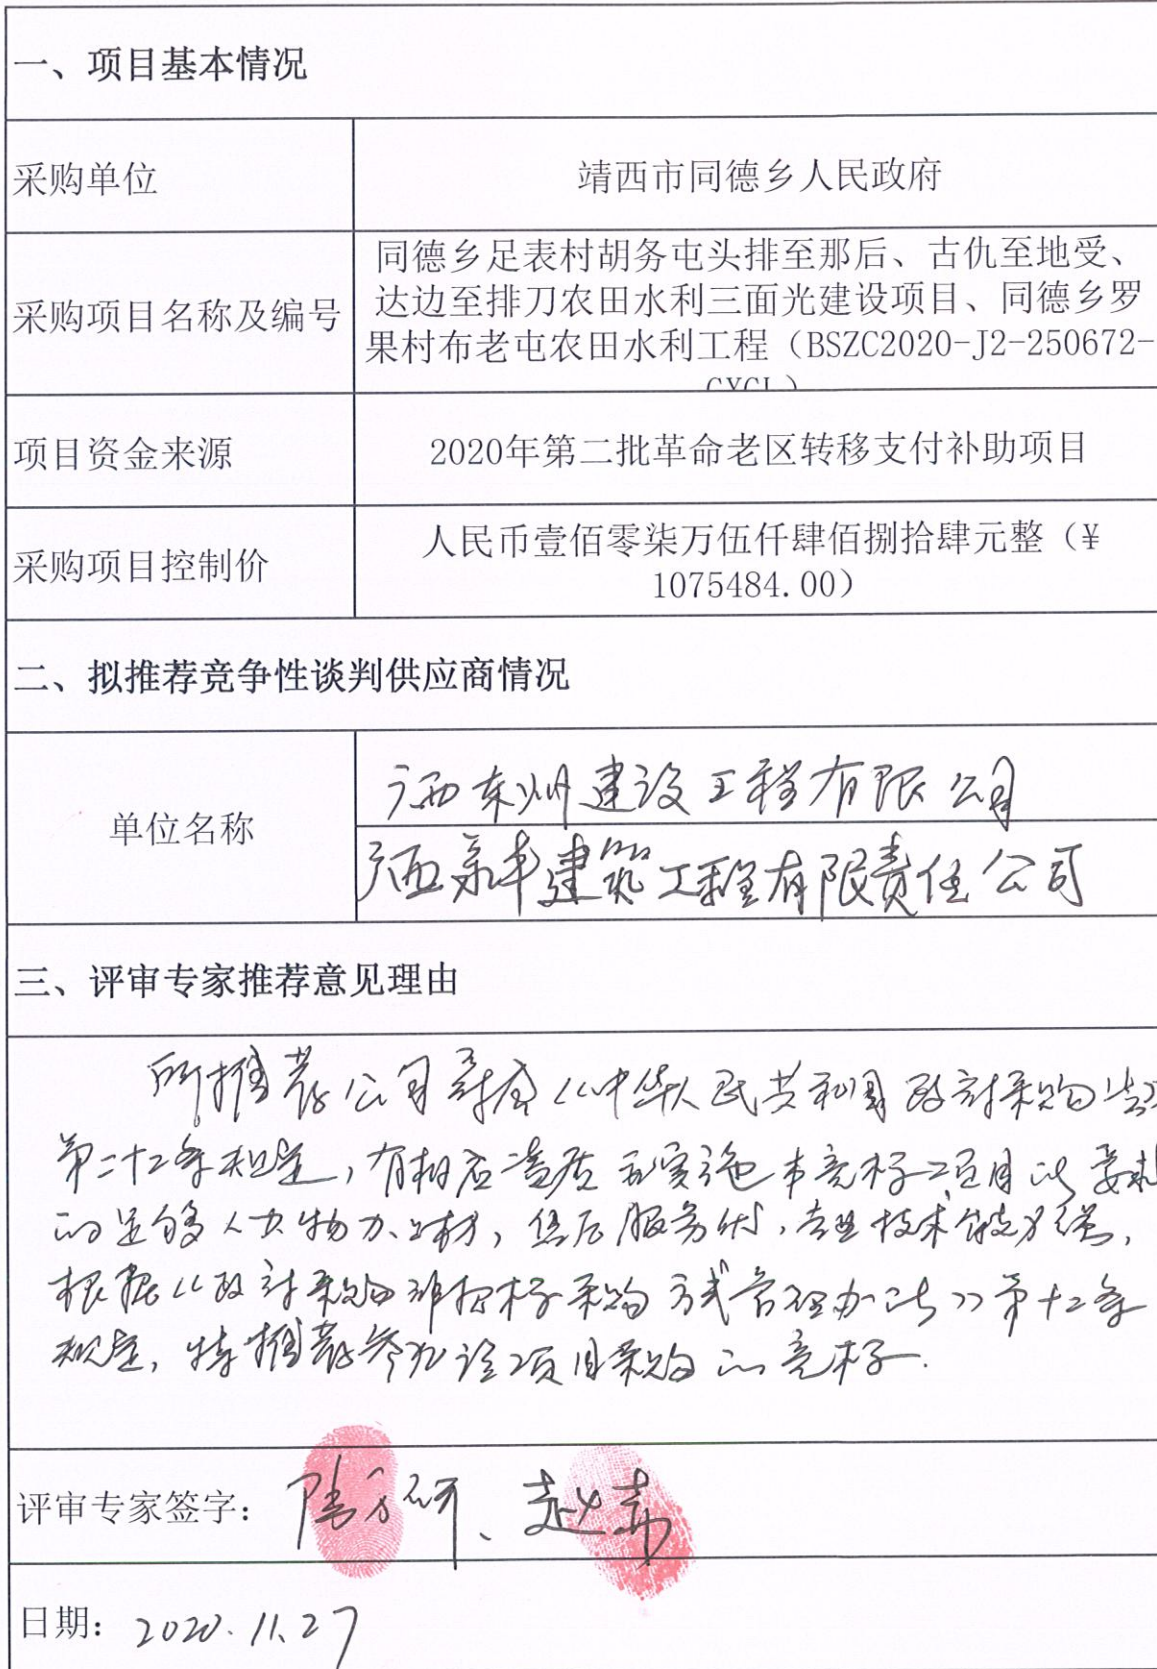 一、项目基本情况
采购单位
靖西市同德乡人民政府
采购项目名称及编号
同德乡足表村胡务屯头排至那后、古仇至地受、
达边至排刀农田水利三面光建设项目、同德乡罗
果村布老屯农田水利工程（BSZC2020-J2-250672-
GXCL）
项目资金来源
2020年第二批革命老区转移支付补助项目
采购项目控制价
人民币壹佰零柒万伍仟肆佰捌拾肆元整（¥
1075484.00）
二、拟推荐竞争性谈判供应商情况
单位名称
广西东州建设工程有限公司
广西新丰建筑工程有限责任公司
三、评审专家推荐意见理由
所推荐公司符合《中华人民共和国政府采购法》
第二十二条规定，有相应资质和实施本竞标项目所要求
的足够人力、物力、财力，售后服务优，专业技术能力强，
根据《政府采购非招标采购方式管理办法》第十二条
规定，特推荐参加该项目采购的竞标.
评审专家签字：
日期：2020.11.27